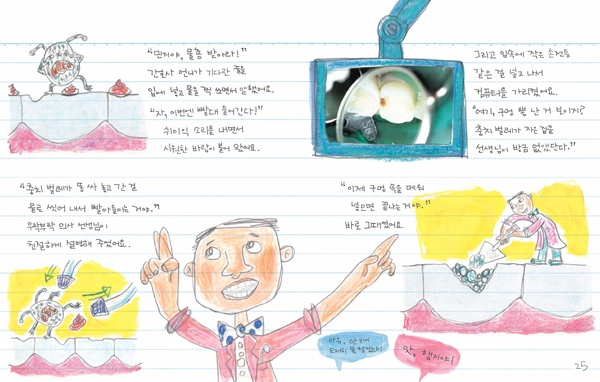 "민지야, 물총 받아라!"
간호사 언니가 기다란 걸
입에 넣고 물을 찍 쏘면서 말했어요.
"자, 이번엔 빨대 들어간다!"
쉬이익 소리를 내면서
시원한 바람이 불어 왔어요.
그리고 입속에 작은 손전등
같은 걸 넣고 나서
컴퓨터를 가리켰어요.
"여기, 구멍 뻥 난 거 보이지?
충치 벌레가 지은 집을
선생님이 방금 없앴단다."
"충치 벌레가 똥 싸 놓고 간 걸
물로 씻어 내서 빨아들이는 거야."
우락부락 의사 선생님이
친절하게 설명해 주었어요.
"이제 구멍 속을 메워
넣으면 끝나는 거야."
바로 그때였어요.
앗, 햄지야!
25